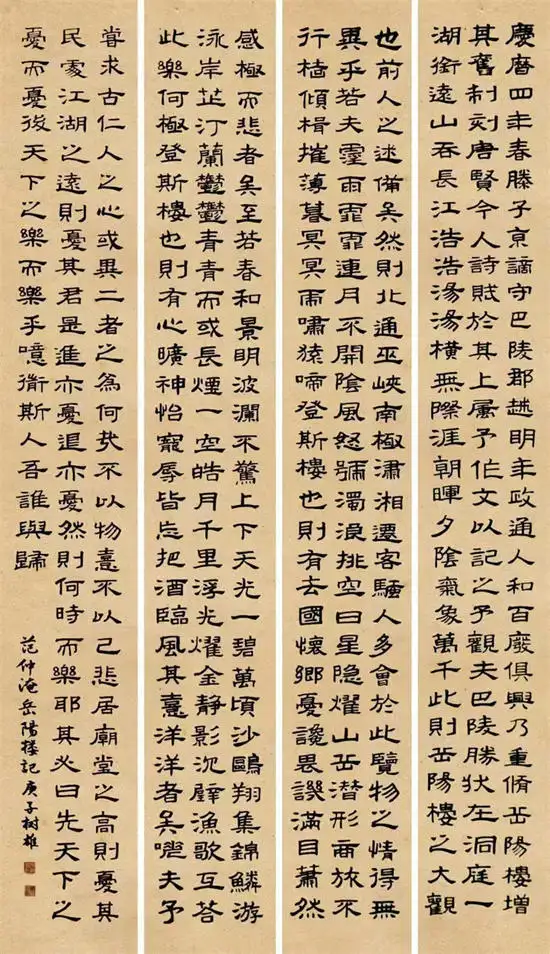 慶曆四年春滕子京謫守巴陵郡越明年政通人和百廢俱興乃重脩岳陽樓增
其舊制刻唐賢今人詩賦於其上屬予作文以記之予觀夫巴陵勝狀在洞庭一
湖銜遠山吞長江浩浩湯湯橫無際涯朝暉夕陰氣象萬千此則岳陽樓之大觀
也前人之述備矣然則北通巫峽南極瀟湘遷客騷人多會於此覽物之情得無
異乎若夫霪雨霏霏連月不開陰風怒號濁浪排空日星隱耀山岳潛形商旅不
行檣傾楫摧薄暮冥冥虎嘯猿啼登斯樓也則有去國懷鄉憂讒畏譏滿目蕭然
感極而悲者矣至若春和景明波瀾不驚上下天光一碧萬頃沙鷗翔集錦鱗游
泳岸芷汀蘭鬱鬱青青而或長煙一空皓月千里浮光耀金靜影沉璧漁歌互答
此樂何極登斯樓也則有心曠神怡寵辱皆忘把酒臨風其憙洋洋者矣嗟夫予
嘗求古仁人之心或異二者之為何哉不以物憙不以己悲居廟堂之高則憂其
民處江湖之遠則憂其君是進亦憂退亦憂然則何時而樂耶其必曰先天下之
憂而憂後天下之樂而樂乎噫微斯人吾誰與歸
范仲淹岳陽楼記庚子樹雄